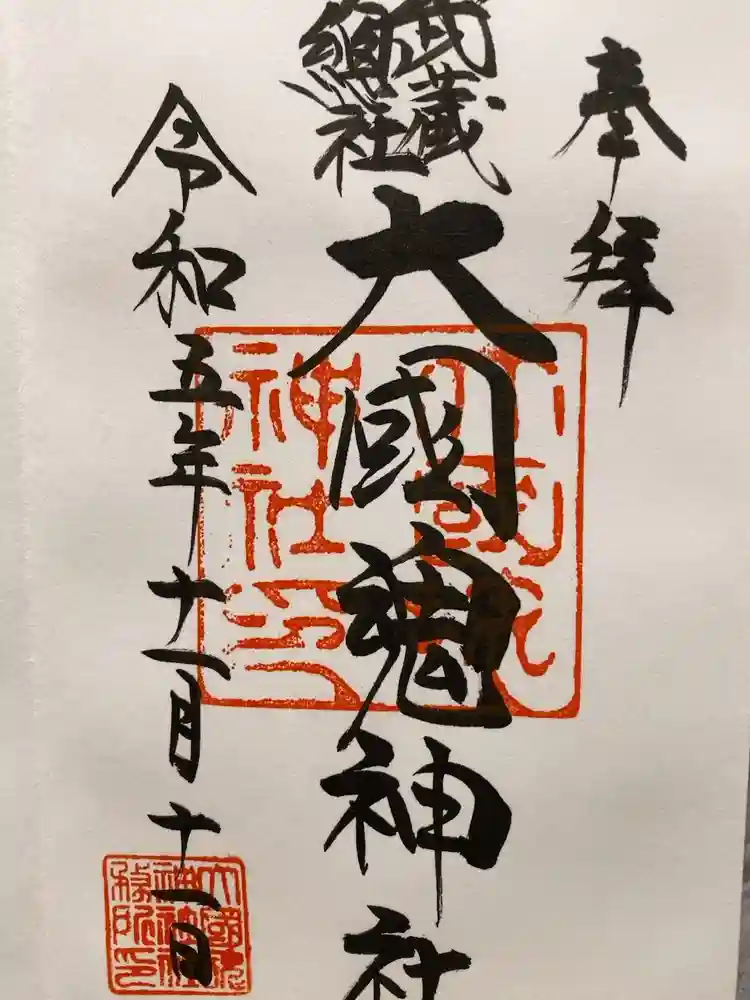 奉拝
武蔵
總社
大國魂神社
令和五年十一月十一日
大國魂
神社印
大國魂
神社社
務所印